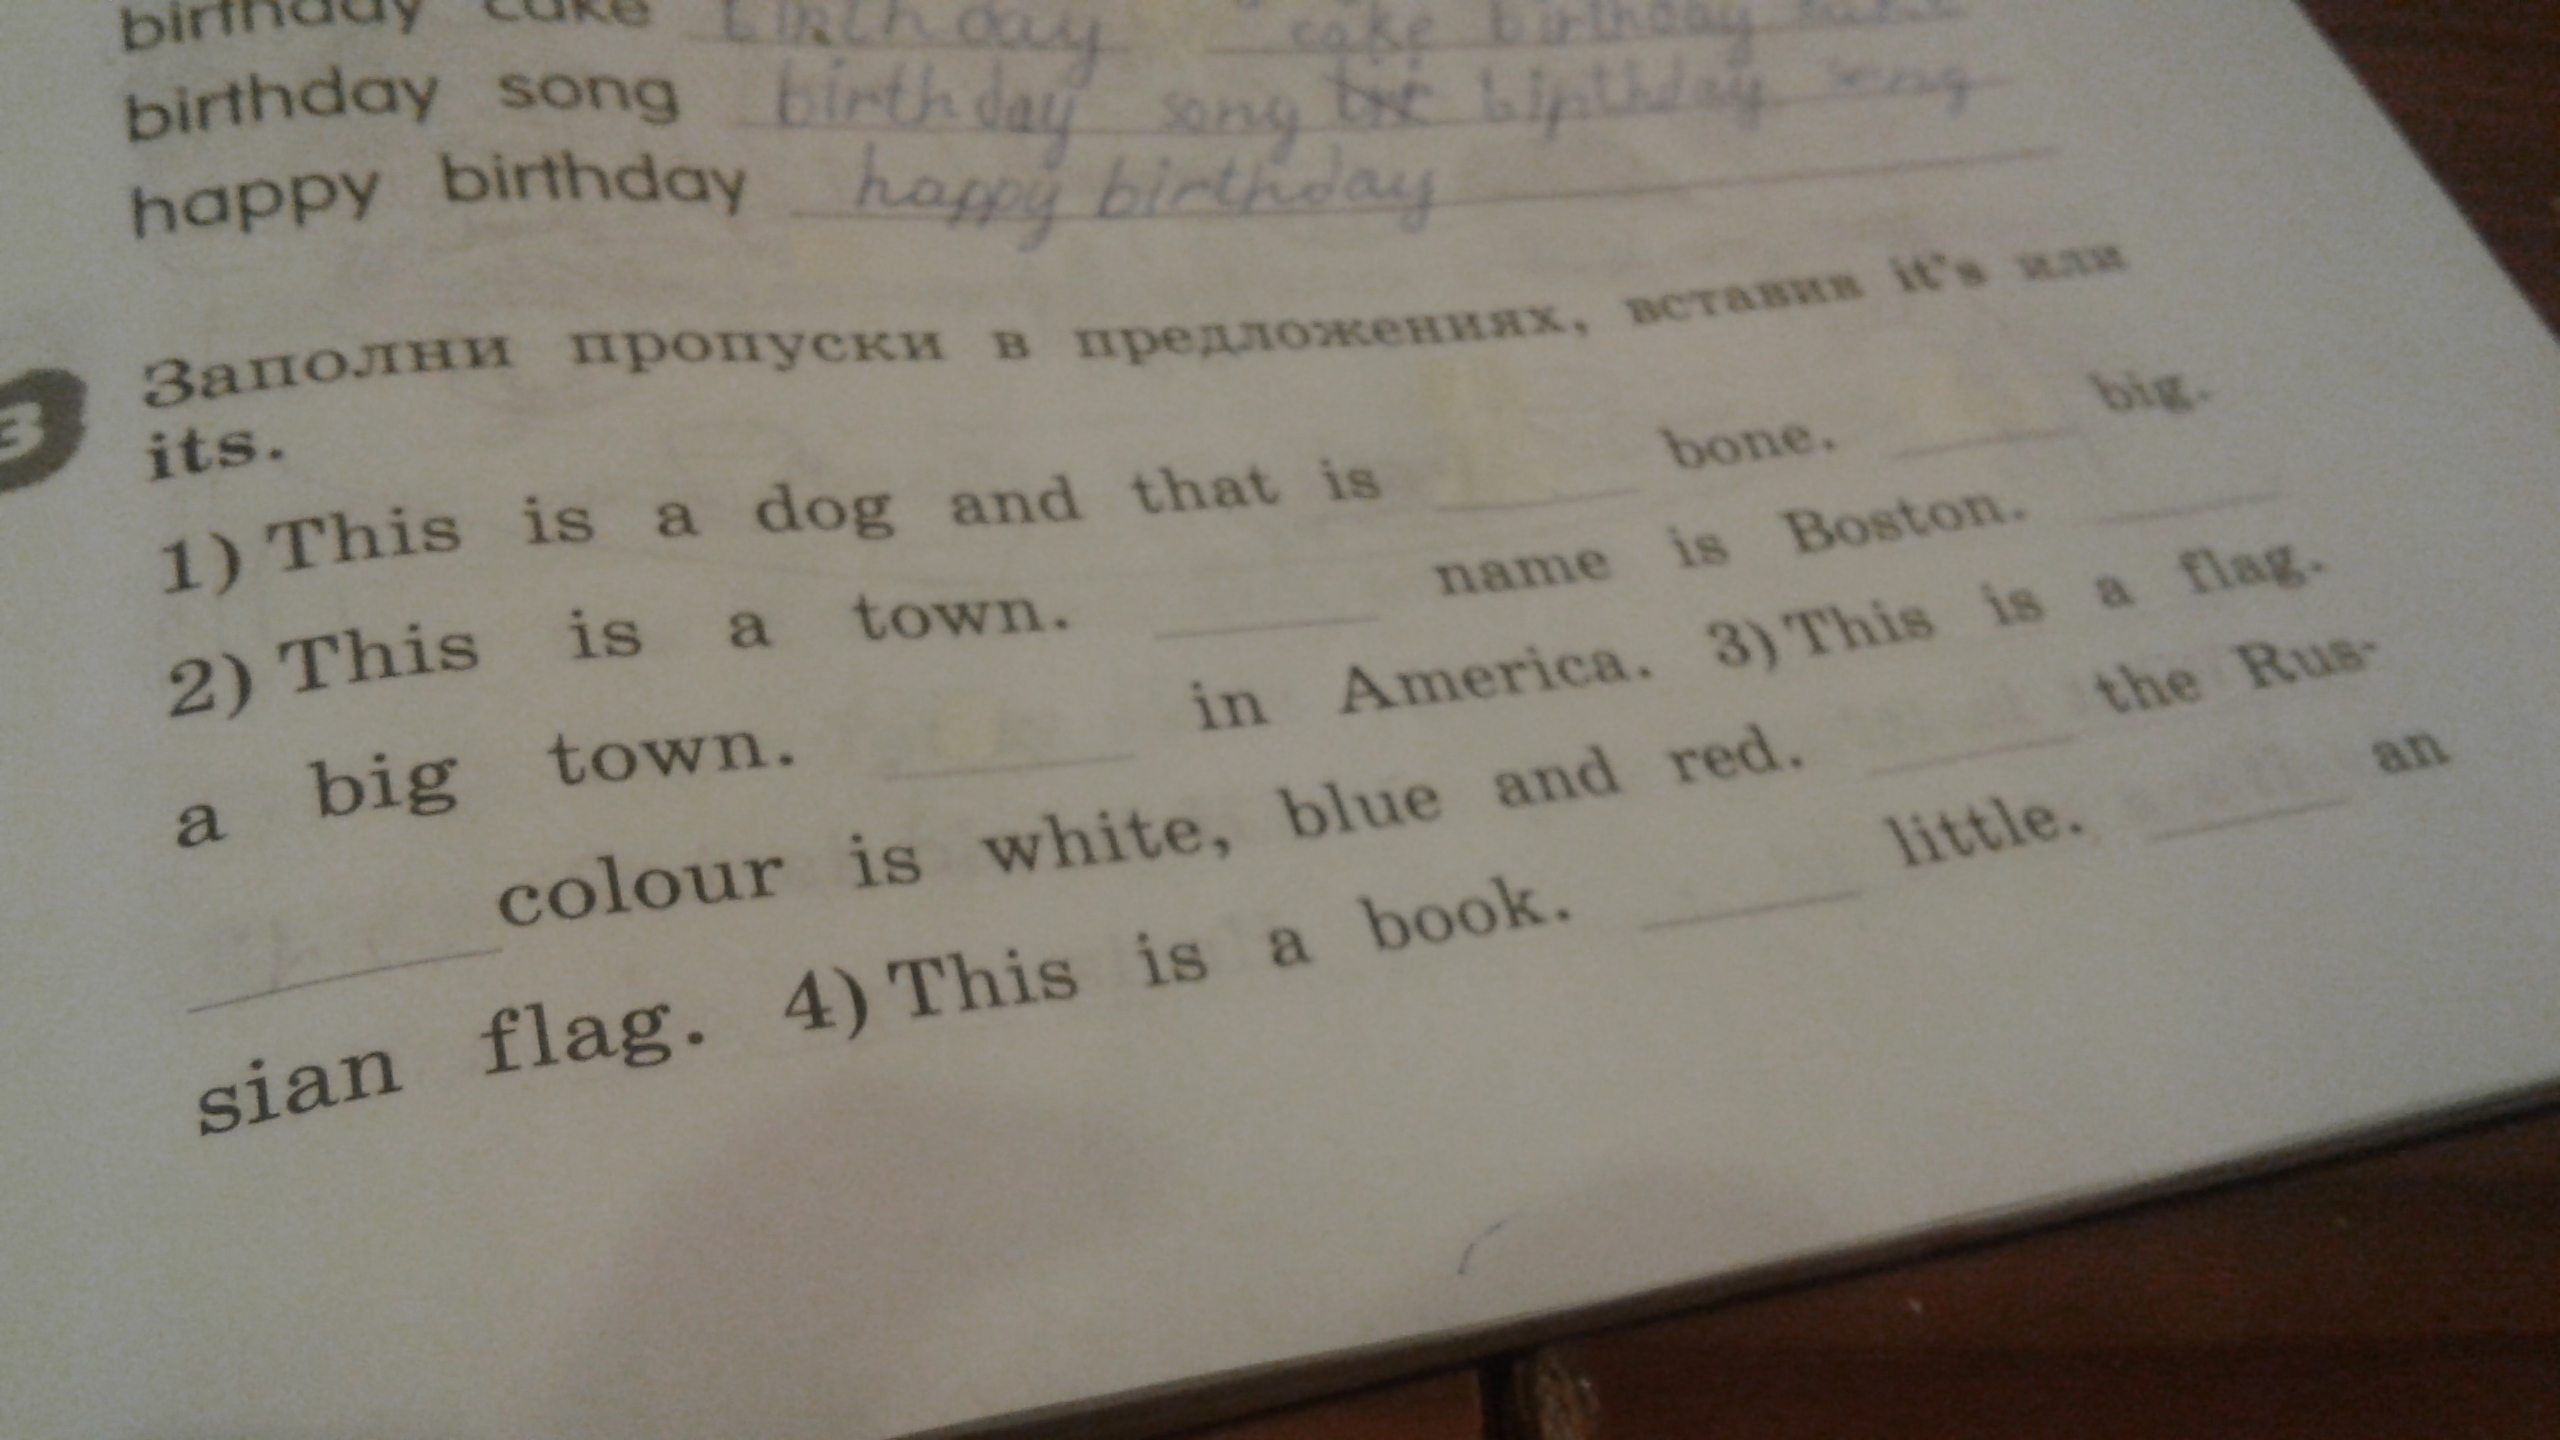 birthday cake birthday cake birthday
birthday song birthday song birthday song
happy birthday happy birthday
3 Заполни пропуски в предложениях, вставив it's или
its.
1) This is a dog and that is ____ bone. ____ big.
2) This is a town. ____ name is Boston. ____
a big town. ____ in America. 3) This is a flag.
____ colour is white, blue and red. ____ the Rus-
sian flag. 4) This is a book. ____ little. ____ an